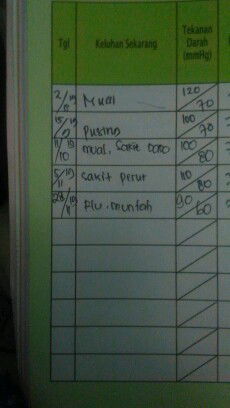 Tgl Keluhan Sekarang Tekanan Darah (mmHg)
Mual 120/70
Pusing 100/70
mual, Sakit 100/80
5/11 19 Sakit perut 110/80
Flu, muntah 90/60